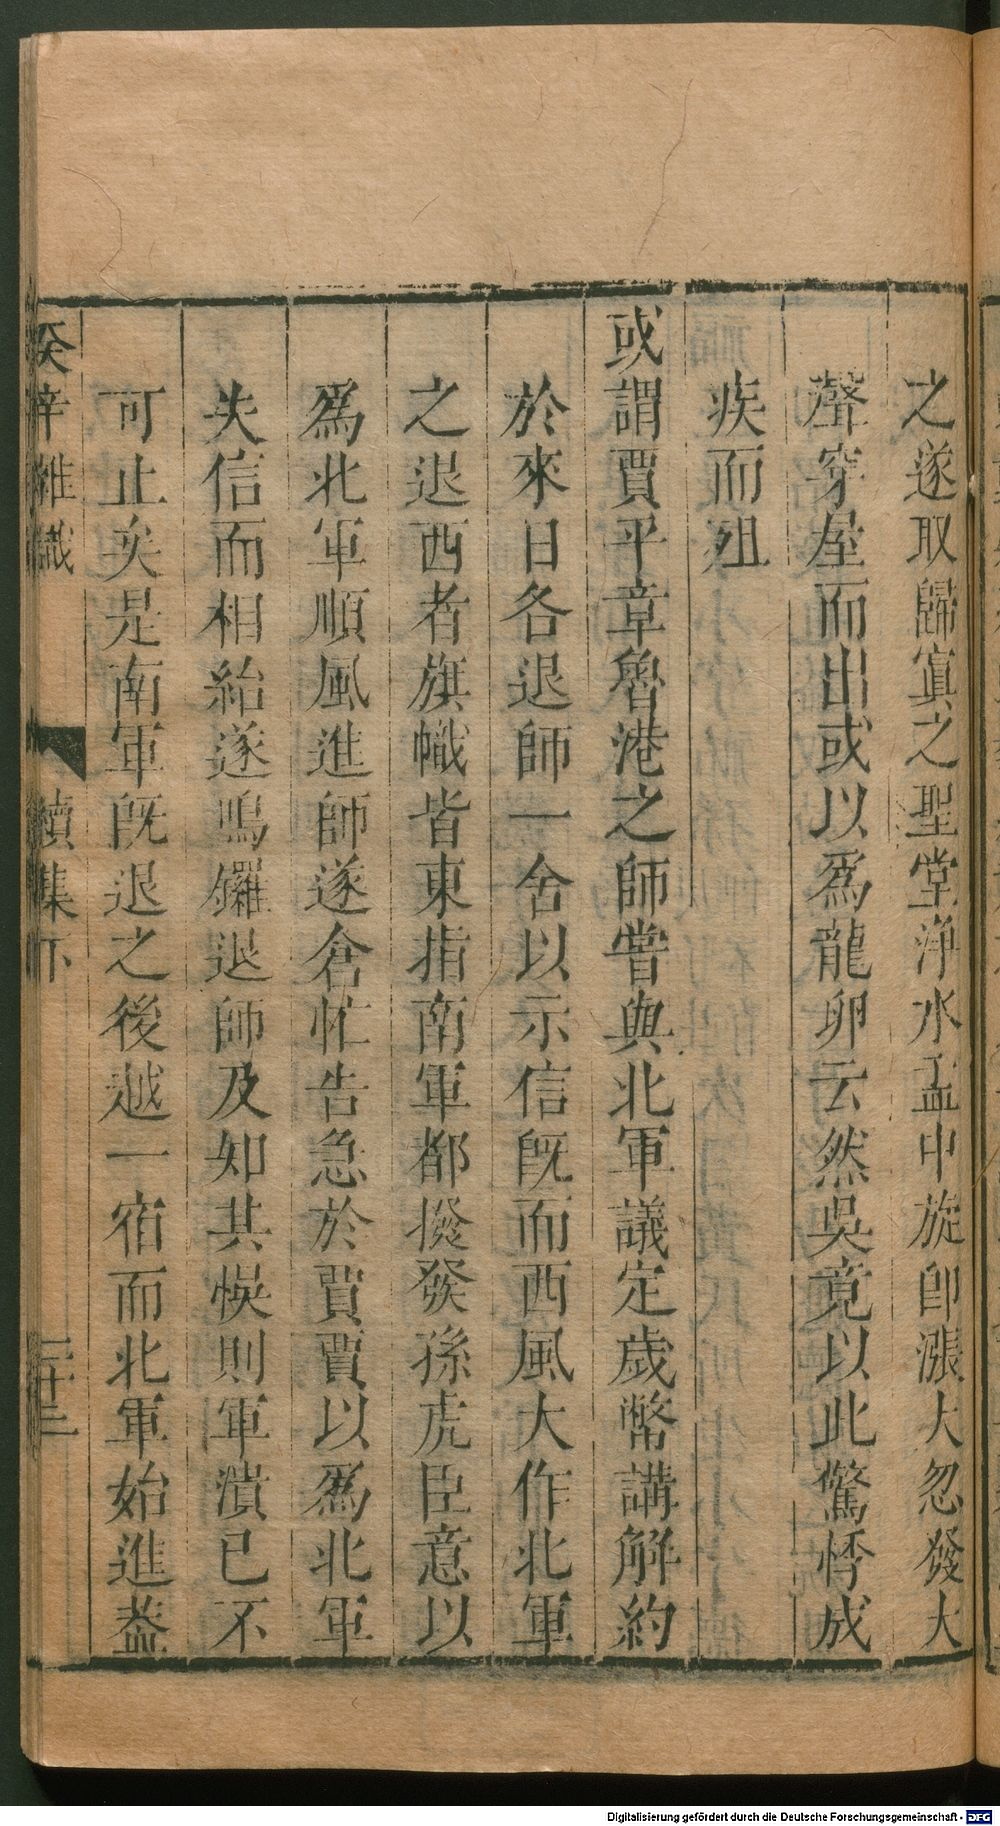 之遂取歸寘之聖堂淨水盂中旋卽漲大忽發大
聲穿屋而出或以爲龍卵云然吳竟以此驚悸成
疾而殂
或謂賈平章魯港之師嘗與北軍議定歲幣講解約
於來日各退師一舍以示信旣而西風大作北軍
之退西者旗幟皆東指南軍都撥發孫虎臣意以
爲北軍順風進師遂倉忙告急於賈賈以爲北軍
失信而相紿遂鳴鑼退師及如其悞則軍潰已不
可止矣是南軍旣退之後越一宿而北軍始進葢
癸辛雜識 續集下 二十三
Digitalisierung gefördert durch die Deutsche Forschungsgemeinschaft - DFG